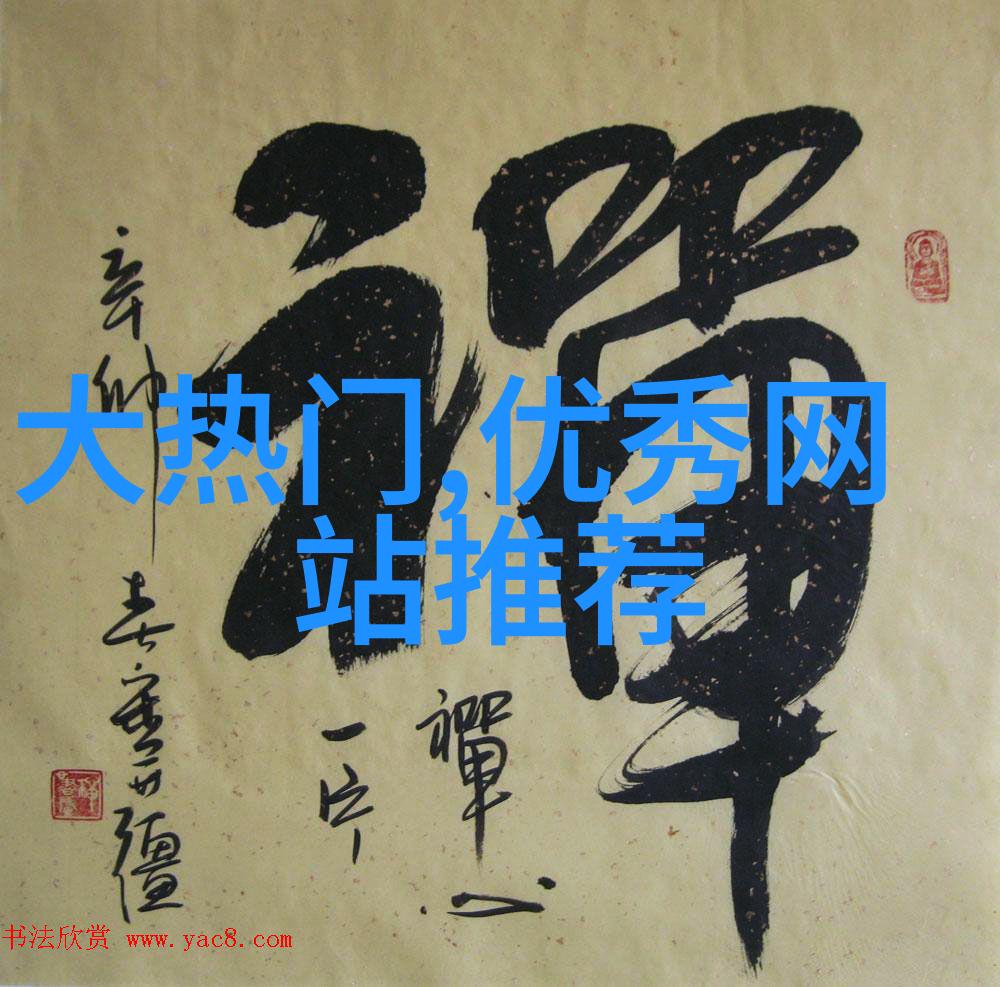 禪
禪心
一片
辛卯
大热门,优秀网
站推荐
书法欣赏 www.yac8.com